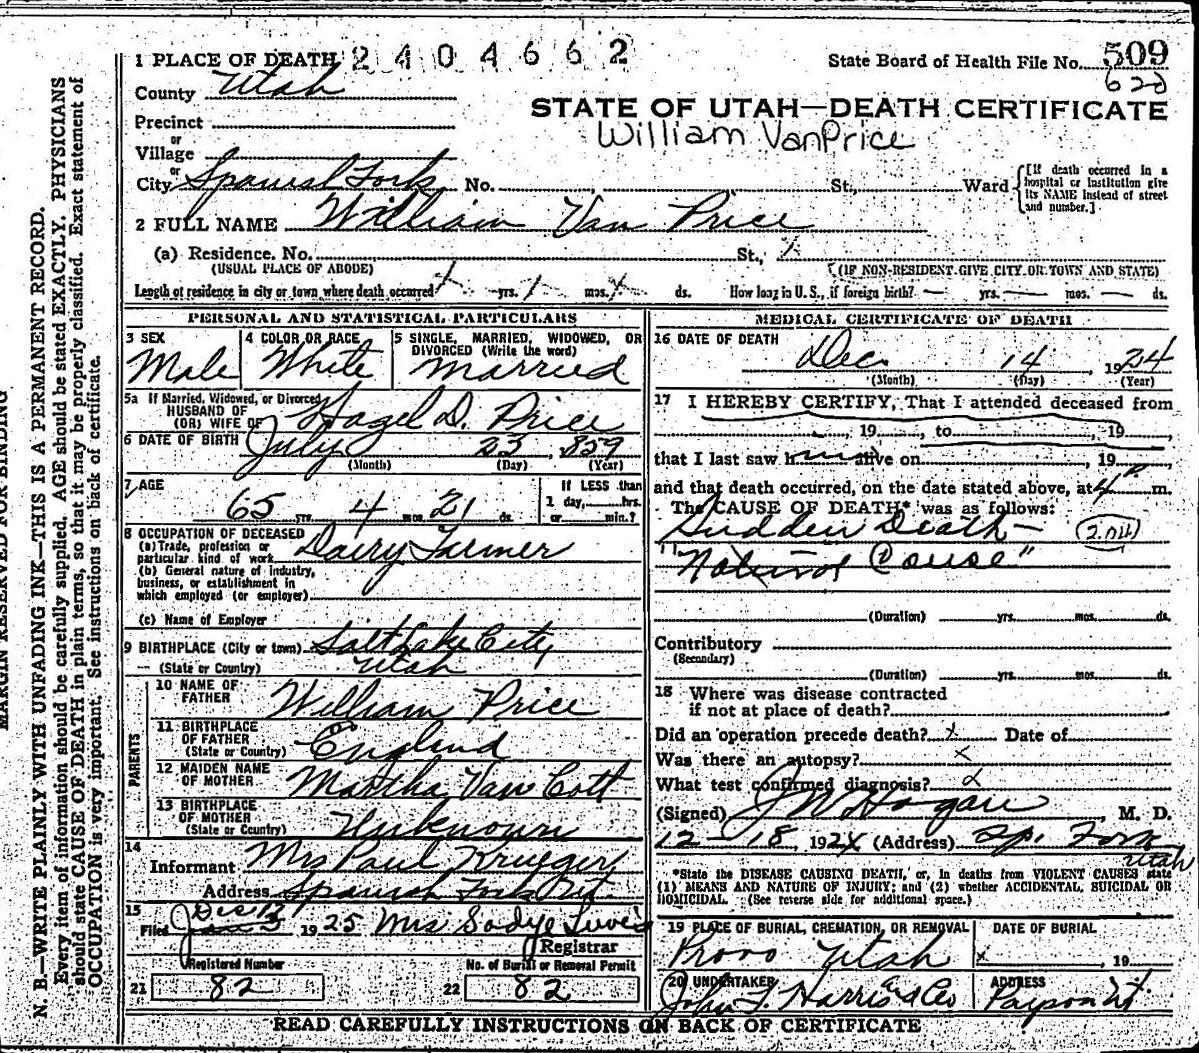 1 PLACE OF DEATH 2404662
State Board of Health File No. 509
622
County Utah
STATE OF UTAH—DEATH CERTIFICATE
William VanPrice
Precinct
or
Village
or
City Spanish Fork No. , St., Ward
[If death occurred in a hospital or institution give its NAME instead of street and number.]
2 FULL NAME William Van Price
(a) Residence. No. St., x
(USUAL PLACE OF ABODE) (IF NON-RESIDENT GIVE CITY OR TOWN AND STATE)
Length of residence in city or town where death occurred yrs. mos. ds. How long in U. S., if foreign birth? — yrs. — mos. — ds.
PERSONAL AND STATISTICAL PARTICULARS
3 SEX
Male
4 COLOR OR RACE
White
5 SINGLE, MARRIED, WIDOWED, OR DIVORCED (Write the word)
Married
5a If Married, Widowed, or Divorced
HUSBAND OF
(OR) WIFE OF Hazel D. Price
6 DATE OF BIRTH July 23, 1859
(Month) (Day) (Year)
7 AGE
65 yrs. 4 mos. 21 ds.
If LESS than
1 day, hrs.
or min.?
8 OCCUPATION OF DECEASED
(a) Trade, profession or
particular kind of work Dairy Farmer
(b) General nature of industry,
business, or establishment in
which employed (or employer)
(c) Name of Employer
9 BIRTHPLACE (City or town) Salt Lake City
(State or Country) Utah
PARENTS
10 NAME OF
FATHER William Price
11 BIRTHPLACE
OF FATHER
(State or Country) England
12 MAIDEN NAME
OF MOTHER Martha Van Cott
13 BIRTHPLACE
OF MOTHER
(State or Country) Unknown
14
Informant Mrs Paul Krueger
Address Spanish Fork Ut
15 Dec 17
Filed Jan 3 1925 Mrs Sadye Lewis
Registrar
Registered Number
21 82
No. of Burial or Removal Permit
22 82
MEDICAL CERTIFICATE OF DEATH
16 DATE OF DEATH
Dec 14, 1924
(Month) (Day) (Year)
17 I HEREBY CERTIFY, That I attended deceased from
, 19 , to , 19 ,
that I last saw h alive on , 19 ,
and that death occurred, on the date stated above, at 4 m.
The CAUSE OF DEATH* was as follows:
Sudden Death — 204
"Natural Cause"
(Duration) yrs. mos. ds.
Contributory
(Secondary)
(Duration) yrs. mos. ds.
18 Where was disease contracted
if not at place of death?
Did an operation precede death? x Date of
Was there an autopsy? x
What test confirmed diagnosis? x
(Signed) J W Hagan, M. D.
12 18, 1924 (Address) Sp. Fork
Utah
*State the DISEASE CAUSING DEATH, or, in deaths from VIOLENT CAUSES state
(1) MEANS AND NATURE OF INJURY; and (2) whether ACCIDENTAL, SUICIDAL OR
HOMICIDAL. (See reverse side for additional space.)
19 PLACE OF BURIAL, CREMATION, OR REMOVAL
Provo Utah
DATE OF BURIAL
x , 19
20 UNDERTAKER
John T. Harris & Co
ADDRESS
Payson Ut.
READ CAREFULLY INSTRUCTIONS ON BACK OF CERTIFICATE
MARGIN RESERVED FOR BINDING
N. B.—WRITE PLAINLY WITH UNFADING INK—THIS IS A PERMANENT RECORD.
Every item of information should be carefully supplied. AGE should be stated EXACTLY. PHYSICIANS
should state CAUSE OF DEATH in plain terms, so that it may be properly classified. Exact statement of
OCCUPATION is very important. See instructions on back of certificate.